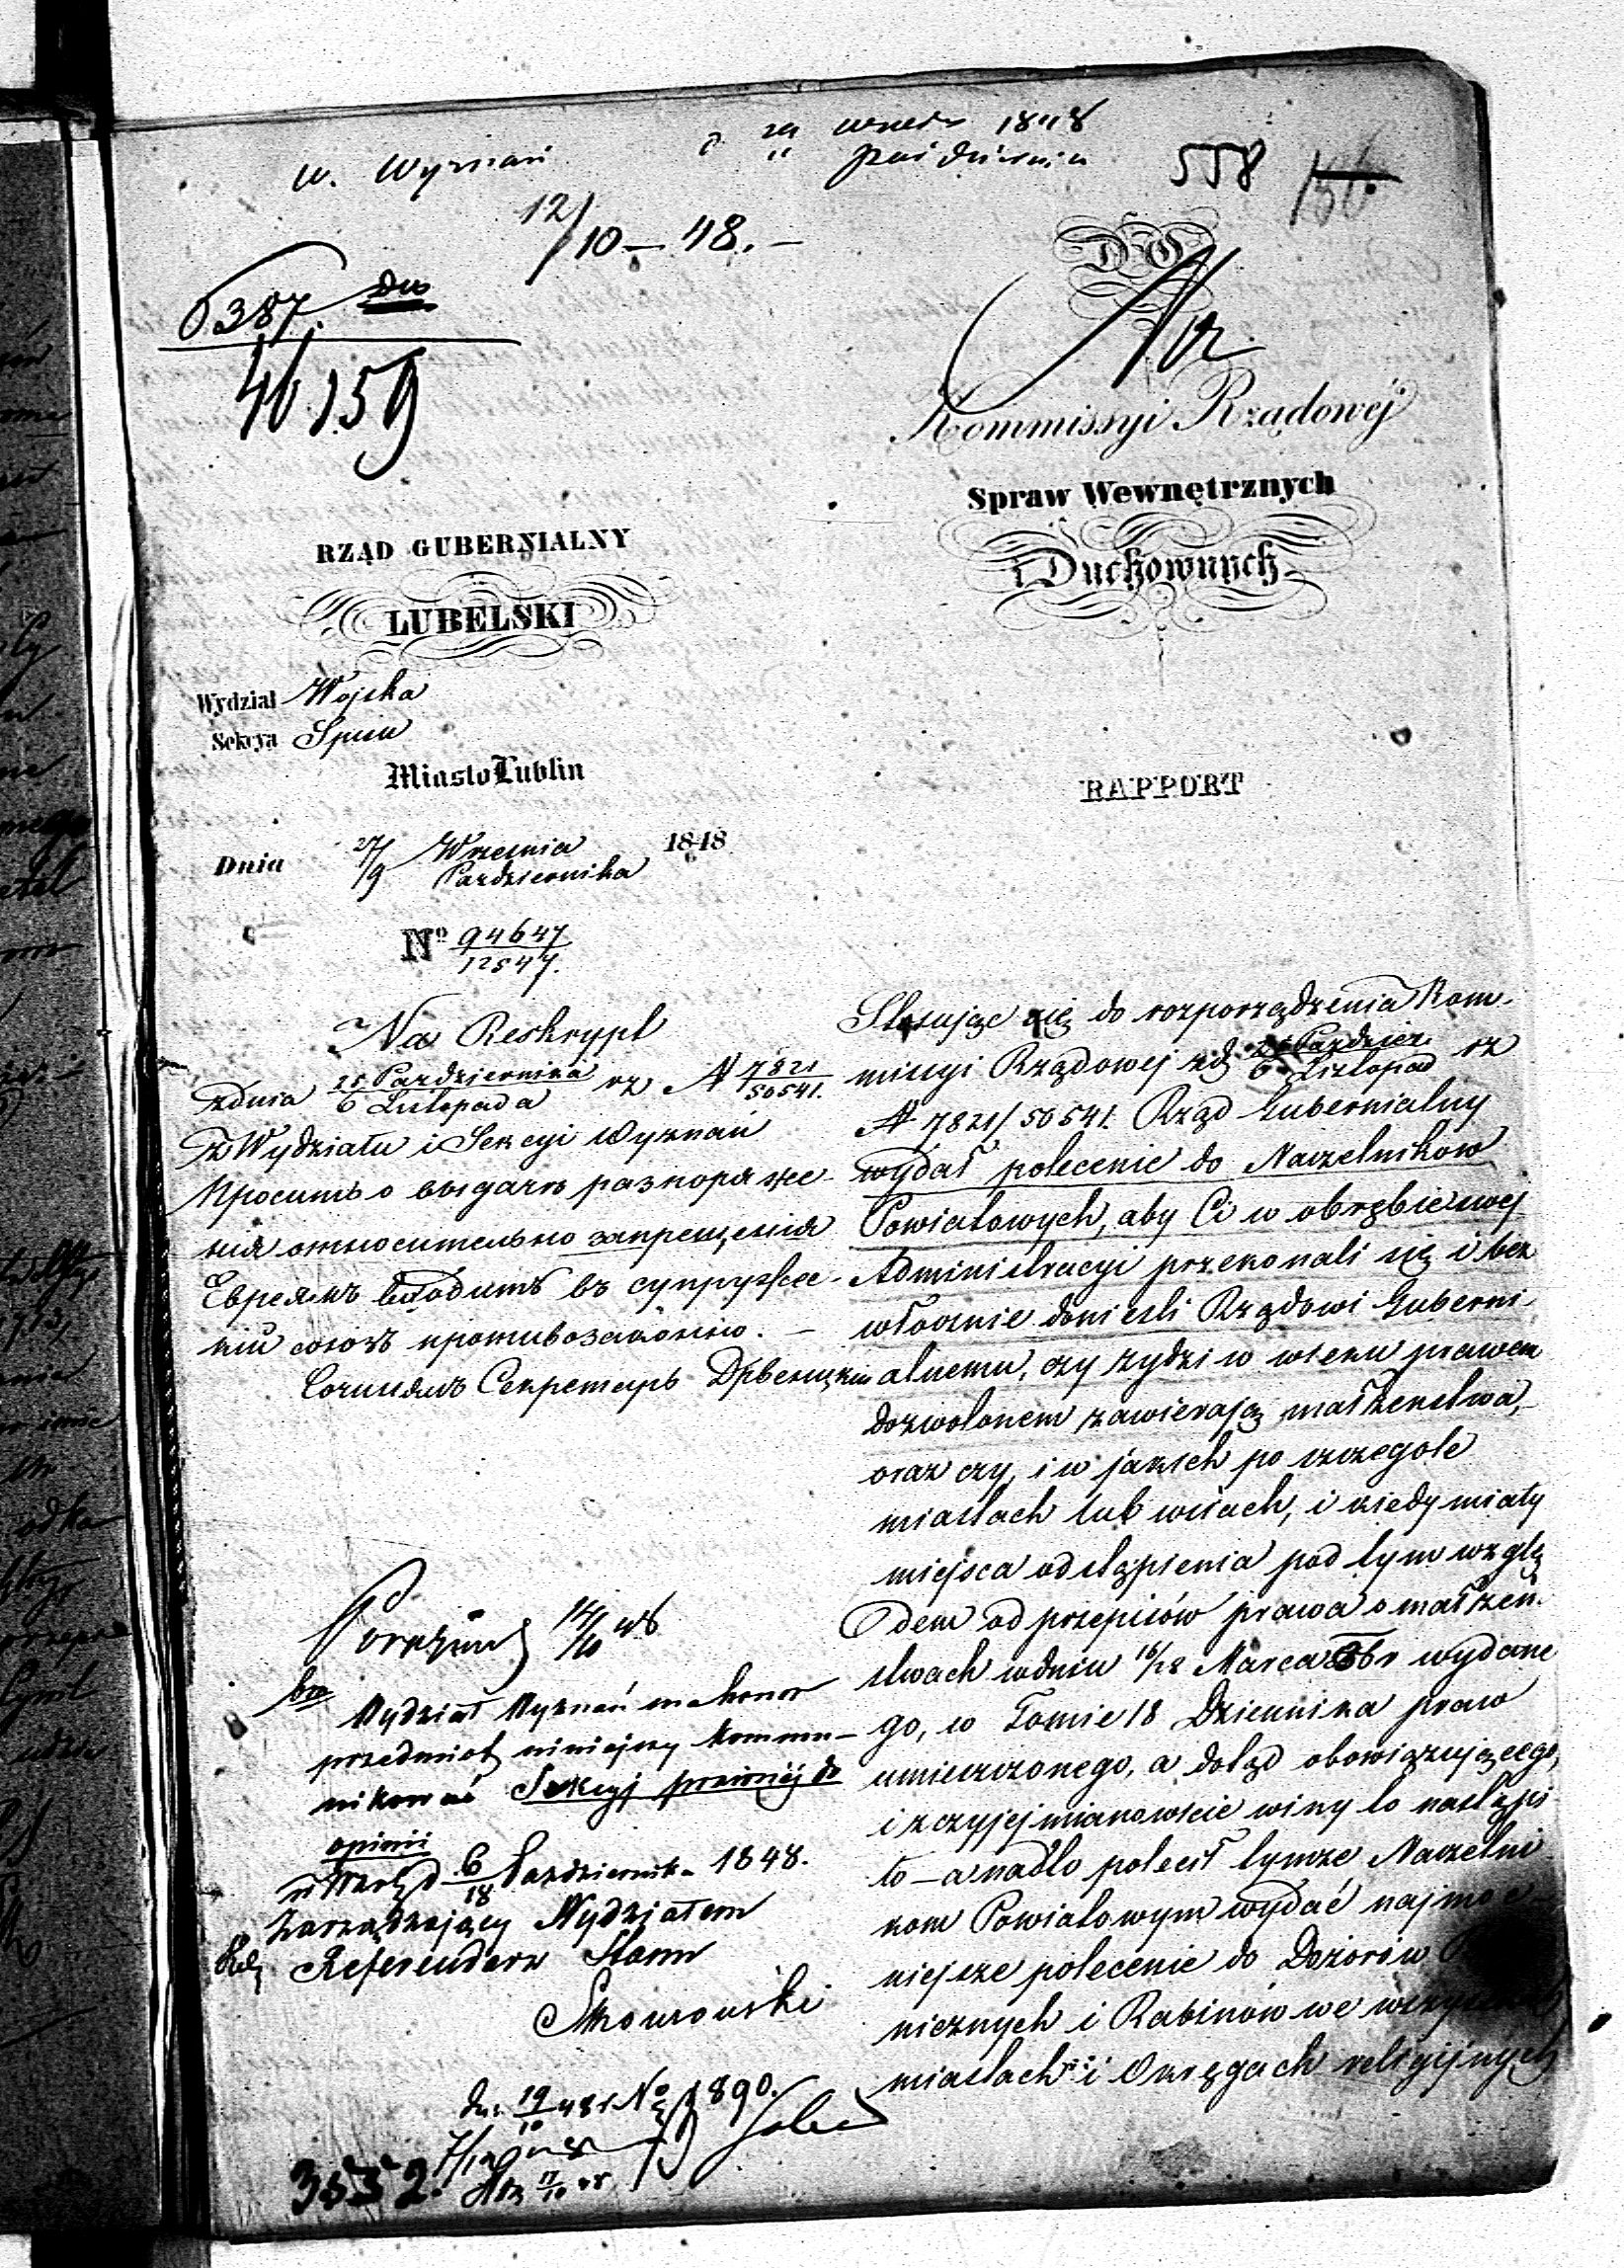 W. Wyznań
558
12/10 – 48. –
6387
46159
DO
Kommissyi Rządowéj
Spraw Wewnętrznych
i Duchownych
RZĄD GUBERNIALNY
LUBELSKI
Wydział Wojska
Sekcya Spisu
Miasto Lublin
RAPPORT
Dnia 27/9 Wrzesnia Pazdziernika 1848
No 94647/12547.
Na Reskrypt
zdnia 25 Pazdziernika / 6 Listopada rz N 7821/50541.
z Wydziału i Sekcyi Wyznań
Просить о выдачь разпоряже-
нія относительно запрещенія
Евреямъ входить въ супружес-
кій союзъ противозаконно. –
Секретарь
Stosując się do rozporządzenia Kom-
missyi Rządowej zd 25 Paździer. / 6 Listopad rz
N 7821/50541. Rząd Gubernialny
wydał polecenie do Naczelników
Powiatowych, aby Ci w obrębie swej
Administracyi przekonali się i bez
włocznie donieśli Rządowi Guberni-
alnemu, czy żydzi w wieku prawem
dozwolonem zawierają małżenstwa,-
oraz czy, i w jakich po szczegole
miastach lub wsiach, i kiedy miały
miejsca odstąpienia pod tym wzglę
dem od przepisów prawa o małżeń-
stwach wdniu 16/28 Marca 36 r wydane
go, w Tomie 18 Dziennika praw
umieszczonego, a dotąd obowiązującego,
i z czyjej mianowicie winy to nastąpi
ło – a nadto polecił tymze Naczelni
kom Powiatowym wydać najmoc-
niejsze polecenie do Dozorów
nicznych i Rabinów we
miastach i Okręgach religijnych
Wydział Wyznań ma honor
przedmiot niniejszy kommu-
nikować Sekcyi
opinii
d 6/18 Pazdziernika 1848.
Zarządzający Wydziałem
Referendarz Stanu
3552.